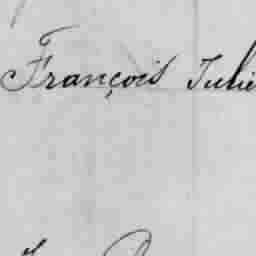 François Julie